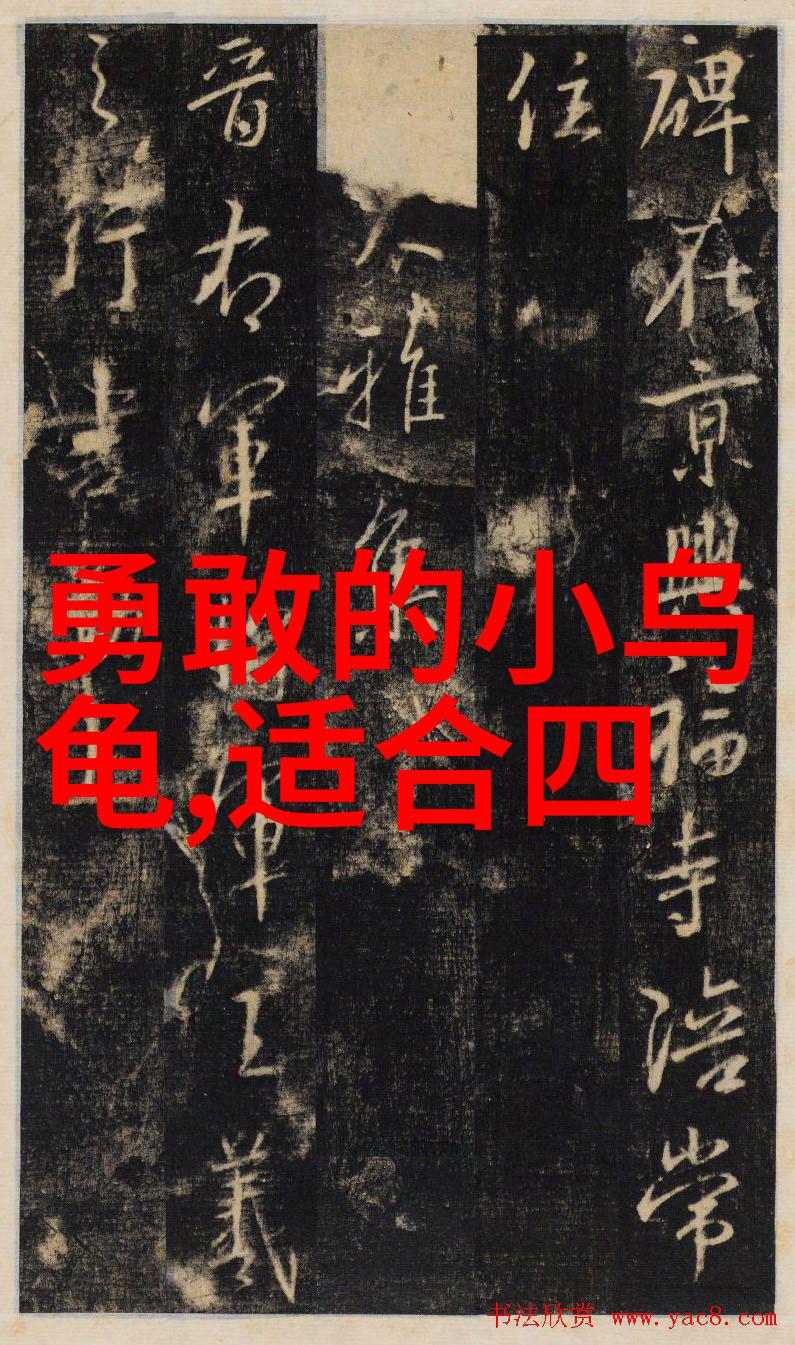 碑在京興福寺陪常
住
大雅集
晉右軍軍王羲
之行書
勇敢的小乌
龟,适合四
书法欣赏 www.yac8.com